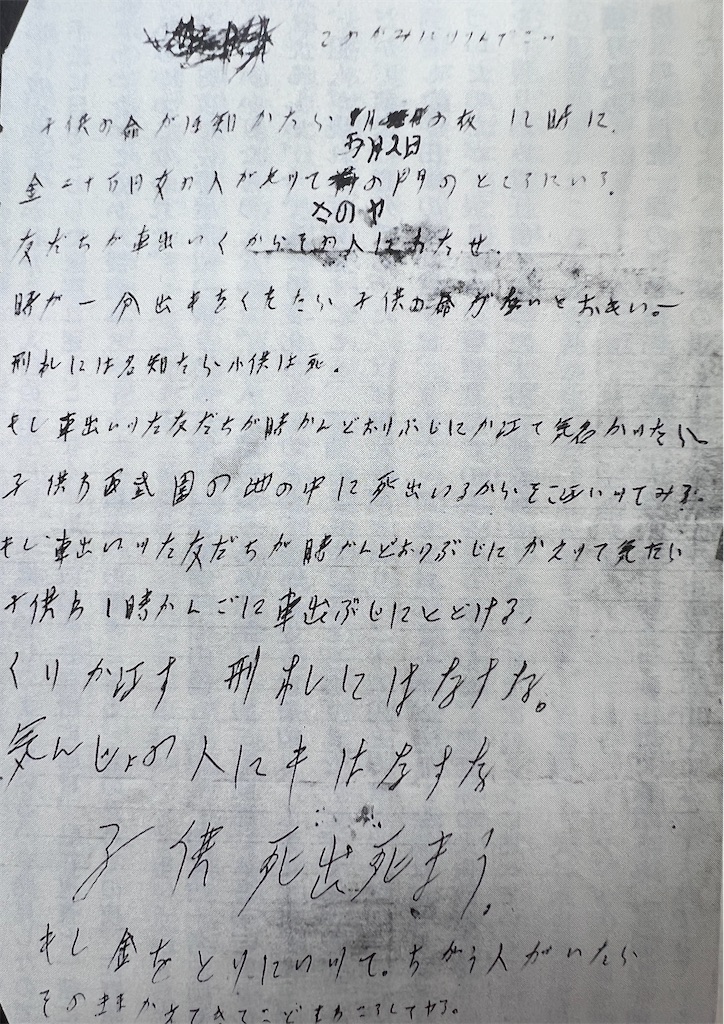 このかみにツツんでこい
子供の命がほ知かたら五月2日の夜12時に、
金二十万円女の人がもツてさのヤの門のところにいろ。
友だちが車出いくからその人にわたせ。
時が一分出もをくれたら子供の命がないとおもい。—
刑札には名知たら小供は死。
もし車出いツた友だちが時かんどおりぶじにか江て気名かツたら
子供わ西武園の池の中に死出いるからそこ江いツてみろ。
もし車出いツた友だちが時かんどおりぶじにかえツて気たら
子供わ1時かんごに車出ぶじにとどける、
くりか江す 刑札にはなすな。
気んじょの人にもはなすな
子供死出死まう。
もし金をとりにいツて。ちがう人がいたら
そのままかえてきてこどもわころしてヤる。